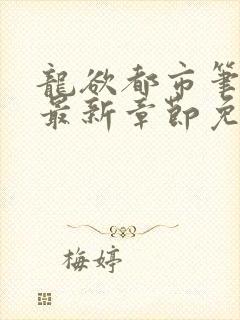 龍欲都市筆
最新章節免
梅婷